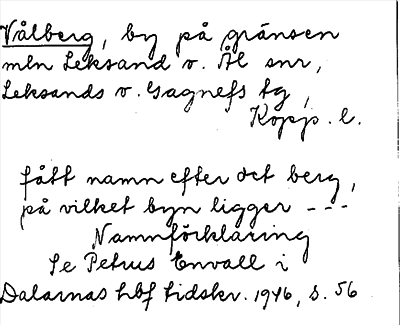 Vålberg, by på gränsen
mln Leksand o. Ål snr,
Leksands o. Gagnefs tg,
Kopp. l.
fått namn efter det berg,
på vilket byn ligger ---
Namnförklaring
Se Petrus Envall i
Dalarnas hbf tidskr. 1946, s. 56